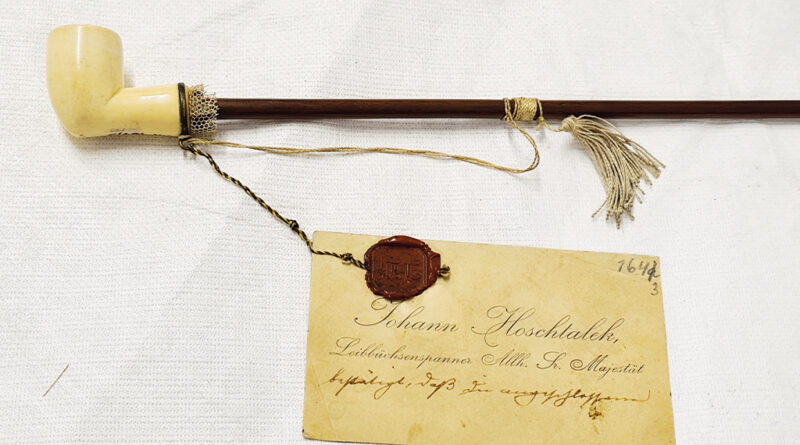 1643
3
Johann Hoschtalek,
Leibbüchsenspanner Allh. Sr. Majestät
bestätigt, daß die angeschlossene